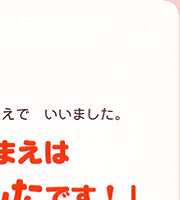 えで　いいました。
まえは
んたです！」